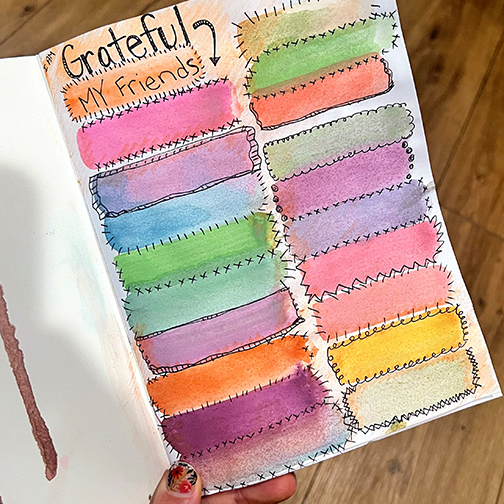 I AM
Grateful
MY FRiends